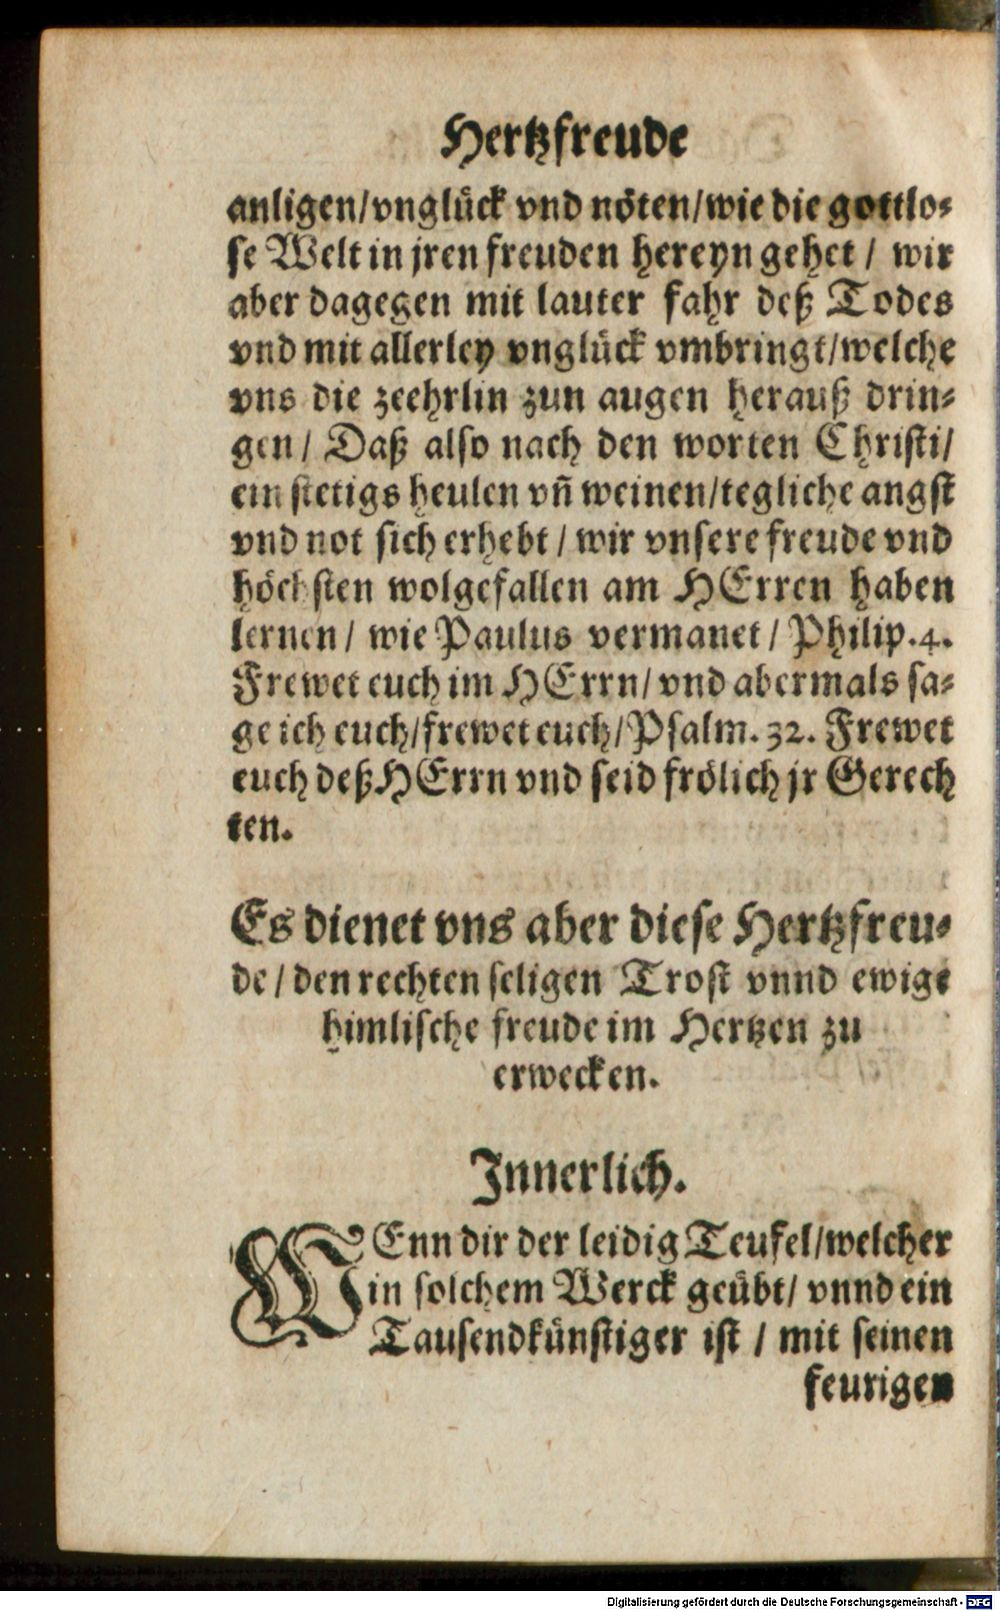 Hertzfreude
anligen/vnglück vnd nöten/wie die gottlo-
se Welt in jren freuden hereyn gehet / wir
aber dagegen mit lauter fahr deß Todes
vnd mit allerley vnglück vmbringt/welche
vns die zeehrlin zun augen herauß drin-
gen/ Daß also nach den worten Christi/
ein stetigs heulen vñ weinen/tegliche angst
vnd not sich erhebt / wir vnsere freude vnd
höchsten wolgefallen am HErren haben
lernen/ wie Paulus vermanet/ Philip.4.
Frewet euch im HErrn/ vnd abermals sa-
ge ich euch/frewet euch/Psalm. 32. Frewet
euch deß HErrn vnd seid frölich jr Gerech
ten.
Es dienet vns aber diese Hertzfreu-
de/ den rechten seligen Trost vnnd ewige
himlische freude im Hertzen zu
erwecken.
Innerlich.
WEnn dir der leidig Teufel/welcher
in solchem Werck geübt/ vnnd ein
Tausendkünstiger ist / mit seinen
feurigen
Digitalisierung gefördert durch die Deutsche Forschungsgemeinschaft - DFG